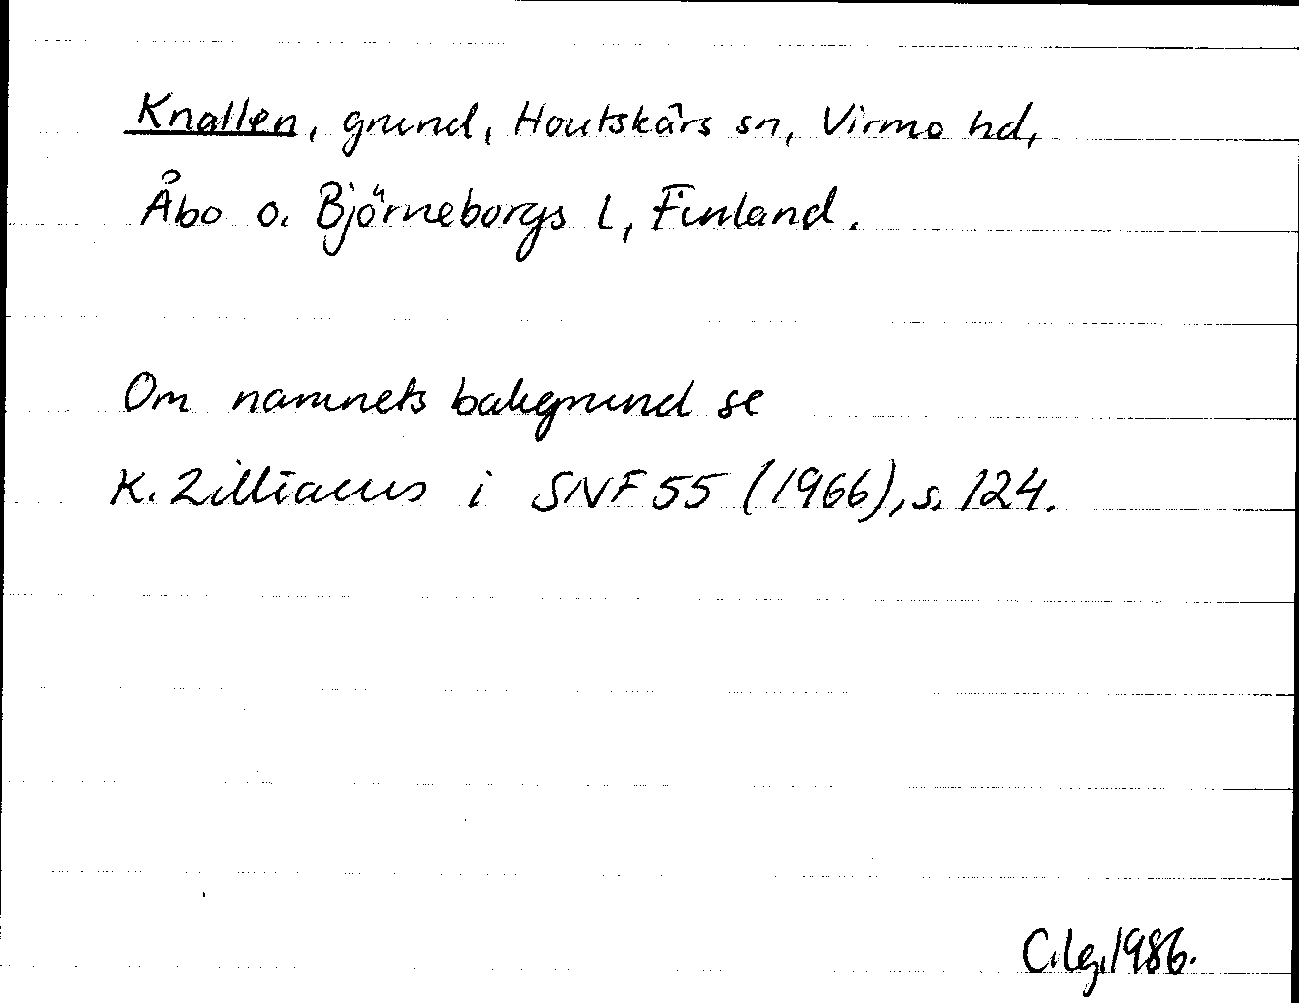 Knallen, grund, Houtskärs sn, Virmo hd,
Åbo o. Björneborgs l, Finland.
Om namnets bakgrund se
K. Zilliacus i SNF 55 (1966), s. 124.
C.Lg, 1986.